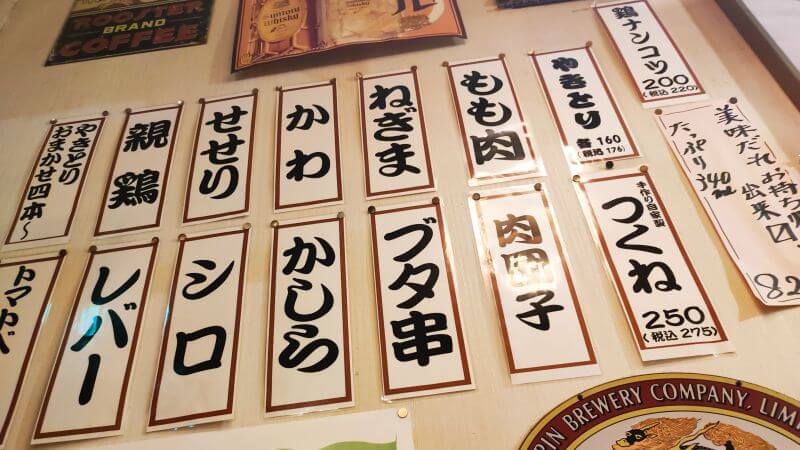 ROOSTER
BRAND
COFFEE
Suntory
Whisky
鶏ナンコツ
200
(税込 220)
やきとり
各160
(税込 176)
もも肉
ねぎま
かわ
せせり
親鶏
やきとり
おまかせ四本〜
美味だれお持ち
出来〼
たっぷり340ml
82
手作り自家製
つくね
250
(税込 275)
肉団子
ブタ串
かしら
シロ
レバー
BREWERY COMPANY, LIM